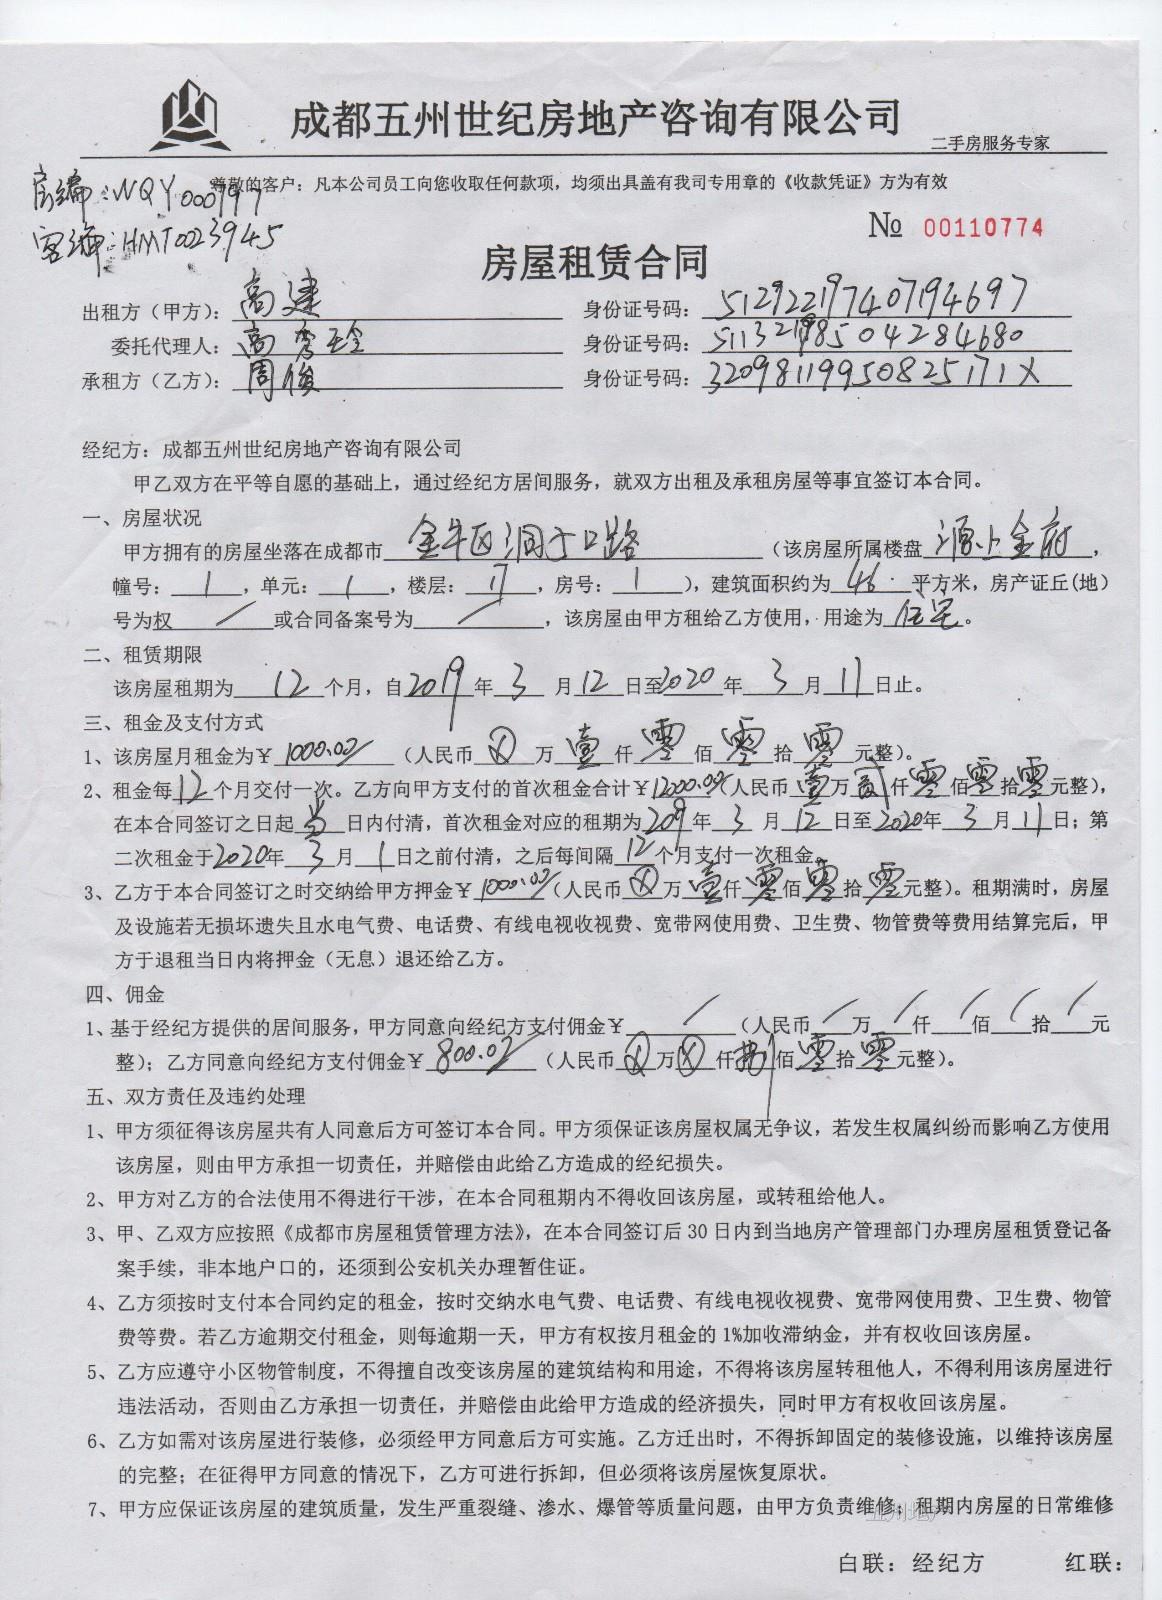 成都五州世纪房地产咨询有限公司
二手房服务专家
尊敬的客户：凡本公司员工向您收取任何款项，均须出具盖有我司专用章的《收款凭证》方为有效
房编：WQY000797
客编：HMT0023945
№ 00110774
房屋租赁合同
出租方（甲方）：高建 身份证号码：512922197407194697
委托代理人：高秀玲 身份证号码：511321198504284680
承租方（乙方）：周俊 身份证号码：32098119950825171X
经纪方：成都五州世纪房地产咨询有限公司
甲乙双方在平等自愿的基础上，通过经纪方居间服务，就双方出租及承租房屋等事宜签订本合同。
一、房屋状况
甲方拥有的房屋坐落在成都市金牛区洞子口路（该房屋所属楼盘源上金府，
幢号：1，单元：1，楼层：17，房号：1），建筑面积约为46平方米，房产证丘(地)
号为权/或合同备案号为/，该房屋由甲方租给乙方使用，用途为住宅。
二、租赁期限
该房屋租期为12个月，自2019年3月12日至2020年3月11日止。
三、租金及支付方式
1、该房屋月租金为￥1000.00（人民币⊗万壹仟零佰零拾零元整）。
2、租金每12个月交付一次。乙方向甲方支付的首次租金合计￥12000.00（人民币壹万贰仟零佰零拾零元整），
在本合同签订之日起当日内付清，首次租金对应的租期为2019年3月12日至2020年3月11日；第
二次租金于2020年3月1日之前付清，之后每间隔12个月支付一次租金。
3、乙方于本合同签订之时交纳给甲方押金￥1000.00（人民币⊗万壹仟零佰零拾零元整）。租期满时，房屋
及设施若无损坏遗失且水电气费、电话费、有线电视收视费、宽带网使用费、卫生费、物管费等费用结算完后，甲
方于退租当日内将押金（无息）退还给乙方。
四、佣金
1、基于经纪方提供的居间服务，甲方同意向经纪方支付佣金￥/（人民币/万/仟/佰/拾/元
整）；乙方同意向经纪方支付佣金￥800.00（人民币⊗万⊗仟捌佰零拾零元整）。
五、双方责任及违约处理
1、甲方须征得该房屋共有人同意后方可签订本合同。甲方须保证该房屋权属无争议，若发生权属纠纷而影响乙方使用
该房屋，则由甲方承担一切责任，并赔偿由此给乙方造成的经纪损失。
2、甲方对乙方的合法使用不得进行干涉，在本合同租期内不得收回该房屋，或转租给他人。
3、甲、乙双方应按照《成都市房屋租赁管理方法》，在本合同签订后30日内到当地房产管理部门办理房屋租赁登记备
案手续，非本地户口的，还须到公安机关办理暂住证。
4、乙方须按时支付本合同约定的租金，按时交纳水电气费、电话费、有线电视收视费、宽带网使用费、卫生费、物管
费等费。若乙方逾期交付租金，则每逾期一天，甲方有权按月租金的1%加收滞纳金，并有权收回该房屋。
5、乙方应遵守小区物管制度，不得擅自改变该房屋的建筑结构和用途，不得将该房屋转租他人，不得利用该房屋进行
违法活动，否则由乙方承担一切责任，并赔偿由此给甲方造成的经济损失，同时甲方有权收回该房屋。
6、乙方如需对该房屋进行装修，必须经甲方同意后方可实施。乙方迁出时，不得拆卸固定的装修设施，以维持该房屋
的完整；在征得甲方同意的情况下，乙方可进行拆卸，但必须将该房屋恢复原状。
7、甲方应保证该房屋的建筑质量，发生严重裂缝、渗水、爆管等质量问题，由甲方负责维修；租期内房屋的日常维修
白联：经纪方 红联：